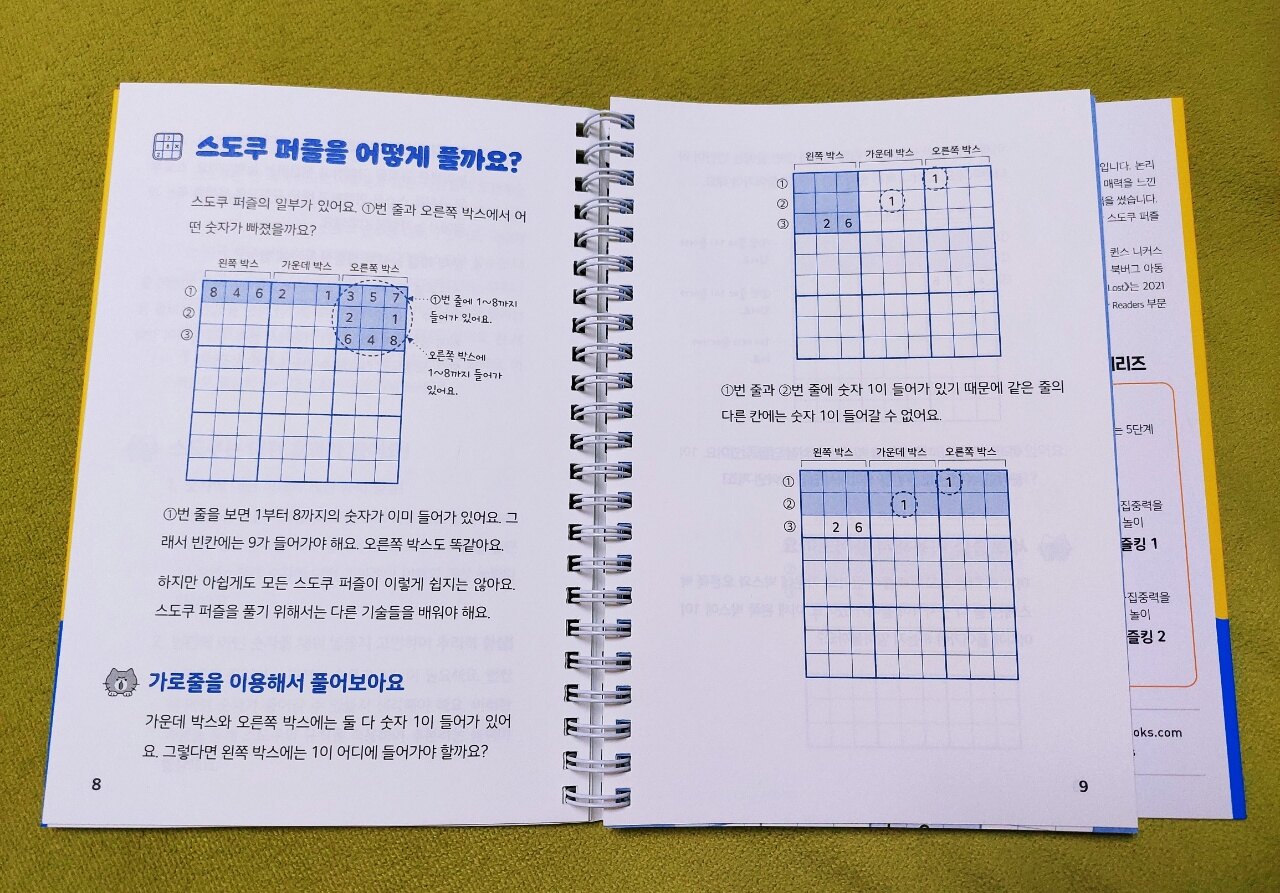 스도쿠 퍼즐을 어떻게 풀까요?
스도쿠 퍼즐의 일부가 있어요. ①번 줄과 오른쪽 박스에서 어
떤 숫자가 빠졌을까요?
왼쪽 박스 가운데 박스 오른쪽 박스
① 8 4 6 2 1 3 5 7
② 2 1
③ 6 4 8
①번 줄에 1~8까지
들어가 있어요.
오른쪽 박스에
1~8까지 들어가
있어요.
①번 줄을 보면 1부터 8까지의 숫자가 이미 들어가 있어요. 그
래서 빈칸에는 9가 들어가야 해요. 오른쪽 박스도 똑같아요.
하지만 아쉽게도 모든 스도쿠 퍼즐이 이렇게 쉽지는 않아요.
스도쿠 퍼즐을 풀기 위해서는 다른 기술들을 배워야 해요.
가로줄을 이용해서 풀어보아요
가운데 박스와 오른쪽 박스에는 둘 다 숫자 1이 들어가 있어
요. 그렇다면 왼쪽 박스에는 1이 어디에 들어가야 할까요?
8
왼쪽 박스 가운데 박스 오른쪽 박스
① 1
② 1
③ 2 6
①번 줄과 ②번 줄에 숫자 1이 들어가 있기 때문에 같은 줄의
다른 칸에는 숫자 1이 들어갈 수 없어요.
왼쪽 박스 가운데 박스 오른쪽 박스
① 1
② 1
③ 2 6
9
입니다. 논리
매력을 느낀
을 썼습니다.
스도쿠 퍼즐
퀸스 니커스
북버그 아동
Lost》는 2021
Readers 부문
리즈
는 5단계
집중력을
놀이
즐킹 1
집중력을
놀이
즐킹 2
oks.com